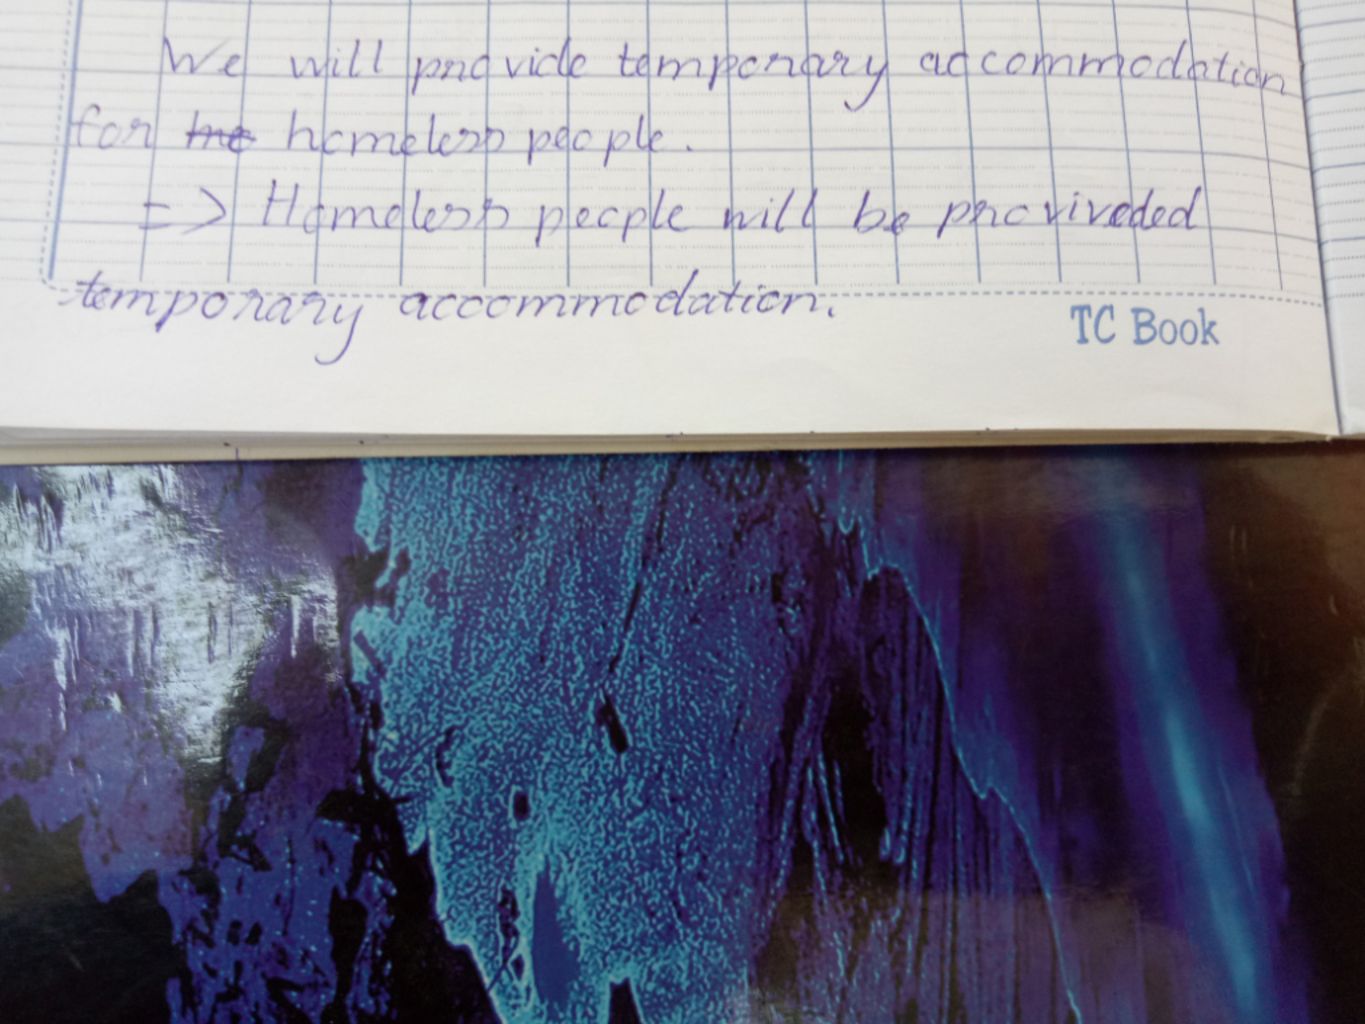 We will provide temporary accommodation
for me homeless people.
=> Homeless people will be proviveded
temporary accommodation.
TC Book